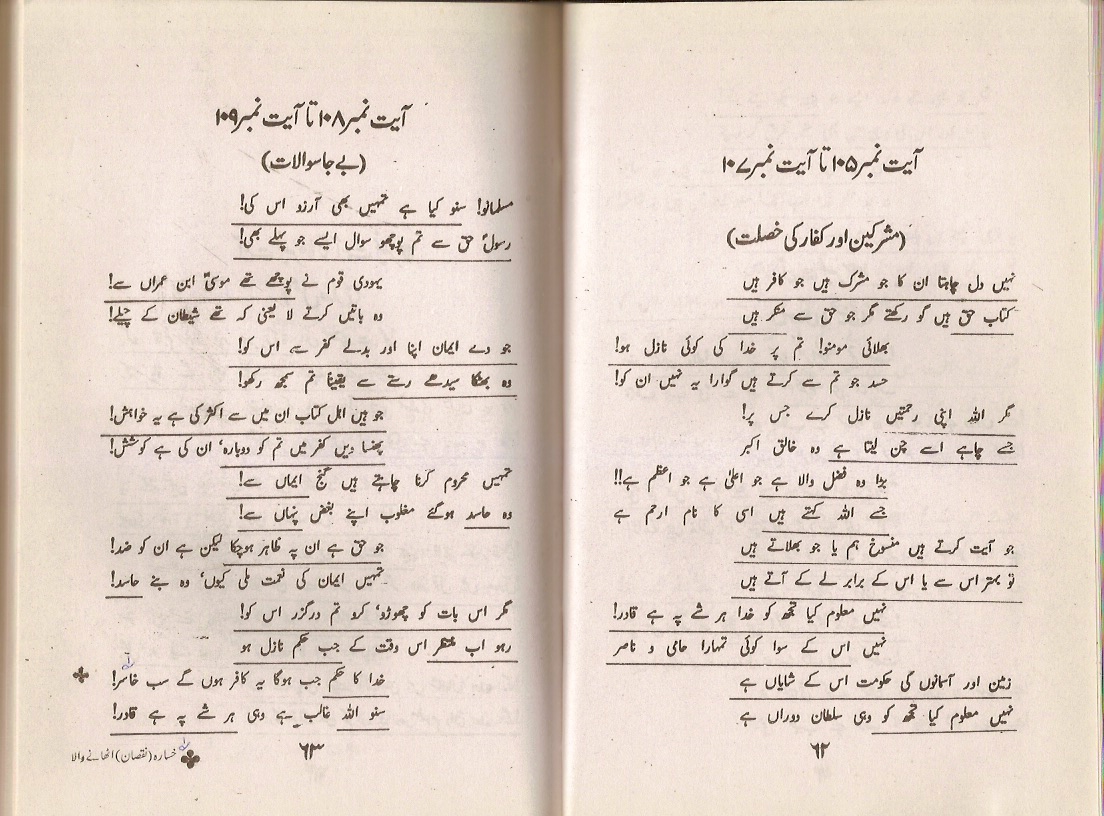 آیت نمبر ۱۰۵ تا آیت نمبر ۱۰۷
(مشرکین اور کفار کی خصلت)
نہیں دل چاہتا ان کا جو مشرک ہیں جو کافر ہیں
کتاب حق ہیں گو رکھتے مگر جو حق سے منکر ہیں
بھلائی مومنو! تم پر خدا کی کوئی نازل ہو!
حسد جو تم سے کرتے ہیں گوارا یہ نہیں ان کو!
مگر اللہ اپنی رحمتیں نازل کرے جس پر!
جسے چاہے اسے چن لیتا ہے وہ خالق اکبر
بڑا وہ فضل والا ہے جو اعلیٰ ہے جو اعظم ہے!!
جسے اللہ کہتے ہیں اسی کا نام ارحم ہے
جو آیت کرتے ہیں منسوخ ہم یا جو بھلاتے ہیں
تو بہتر اس سے یا اس کے برابر لے کے آتے ہیں
نہیں معلوم کیا تجھ کو خدا ہر شے پہ ہے قادر!
نہیں اس کے سوا کوئی تمہارا حامی و ناصر
زمین اور آسمانوں کی حکومت اس کے شایاں ہے
نہیں معلوم کیا تجھ کو وہی سلطان دوراں ہے
۶۲
آیت نمبر ۱۰۸ تا آیت نمبر ۱۰۹
(بے جا سوالات)
مسلمانو! سنو کیا ہے تمہیں بھی آرزو اس کی!
رسولؐ حق سے تم پوچھو سوال ایسے جو پہلے بھی!
یہودی قوم نے پوچھے تھے موسیٰؑ ابن عمراں سے!
وہ باتیں کرتے لا یعنی کہ تھے شیطان کے چیلے!
جو دے ایمان اپنا اور بدلے کفر سے اس کو!
وہ بھٹکا سیدھے رستے سے یقیناً تم سمجھ رکھو!
جو ہیں اہل کتاب ان میں سے اکثر کی ہے یہ خواہش!
پھنسا دیں کفر میں تم کو دوبارہ‘ ان کی ہے کوشش!
تمہیں محروم کرنا چاہتے ہیں گنج ایماں سے!
وہ حاسد ہوگئے مغلوب اپنے بغض پنہاں سے!
جو حق ہے ان پہ ظاہر ہوچکا لیکن ہے ان کو ضد!
تمہیں ایمان کی نعمت ملی کیوں‘ وہ بنے حاسد!
مگر اس بات کو چھوڑو‘ کرو تم درگزر اس کو!
رہو اب منتظر اس وقت کے جب حکم نازل ہو
خدا کا حکم جب ہوگا یہ کافر ہوں گے سب خاسر!
سنو اللہ غالب ہے وہی ہر شے پہ ہے قادر!
۶۳
خسارہ (نقصان) اٹھانے والا